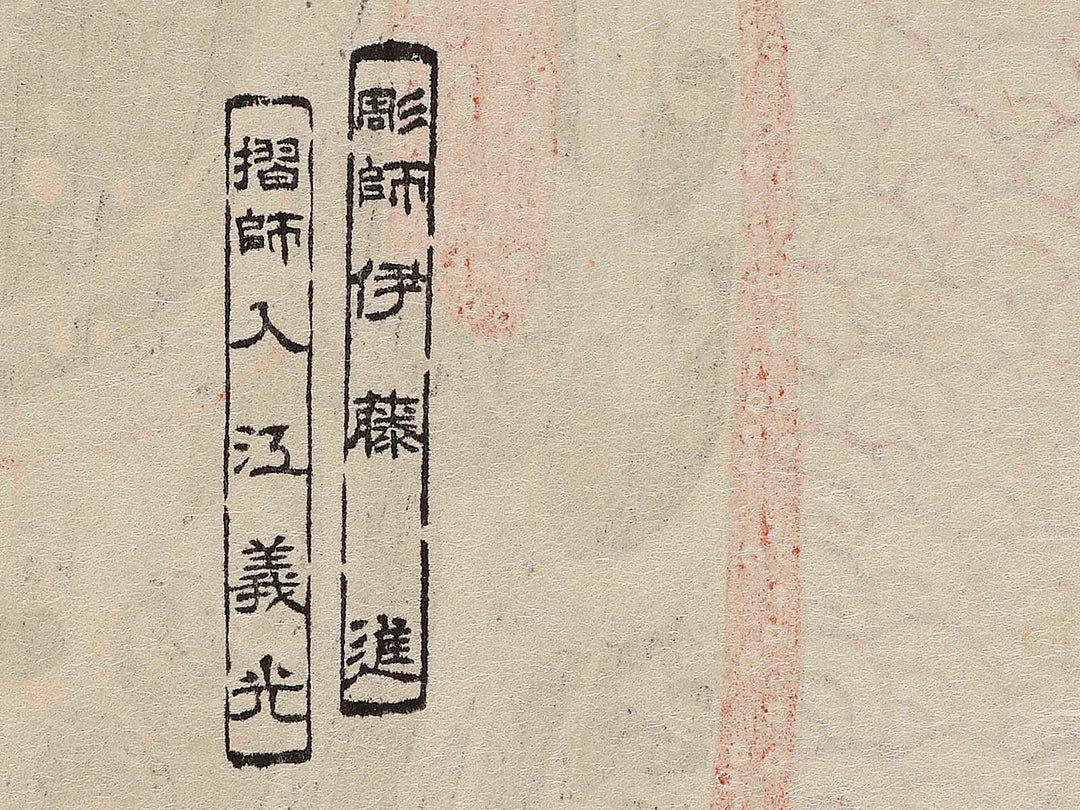 彫師伊藤進
摺師入江義光